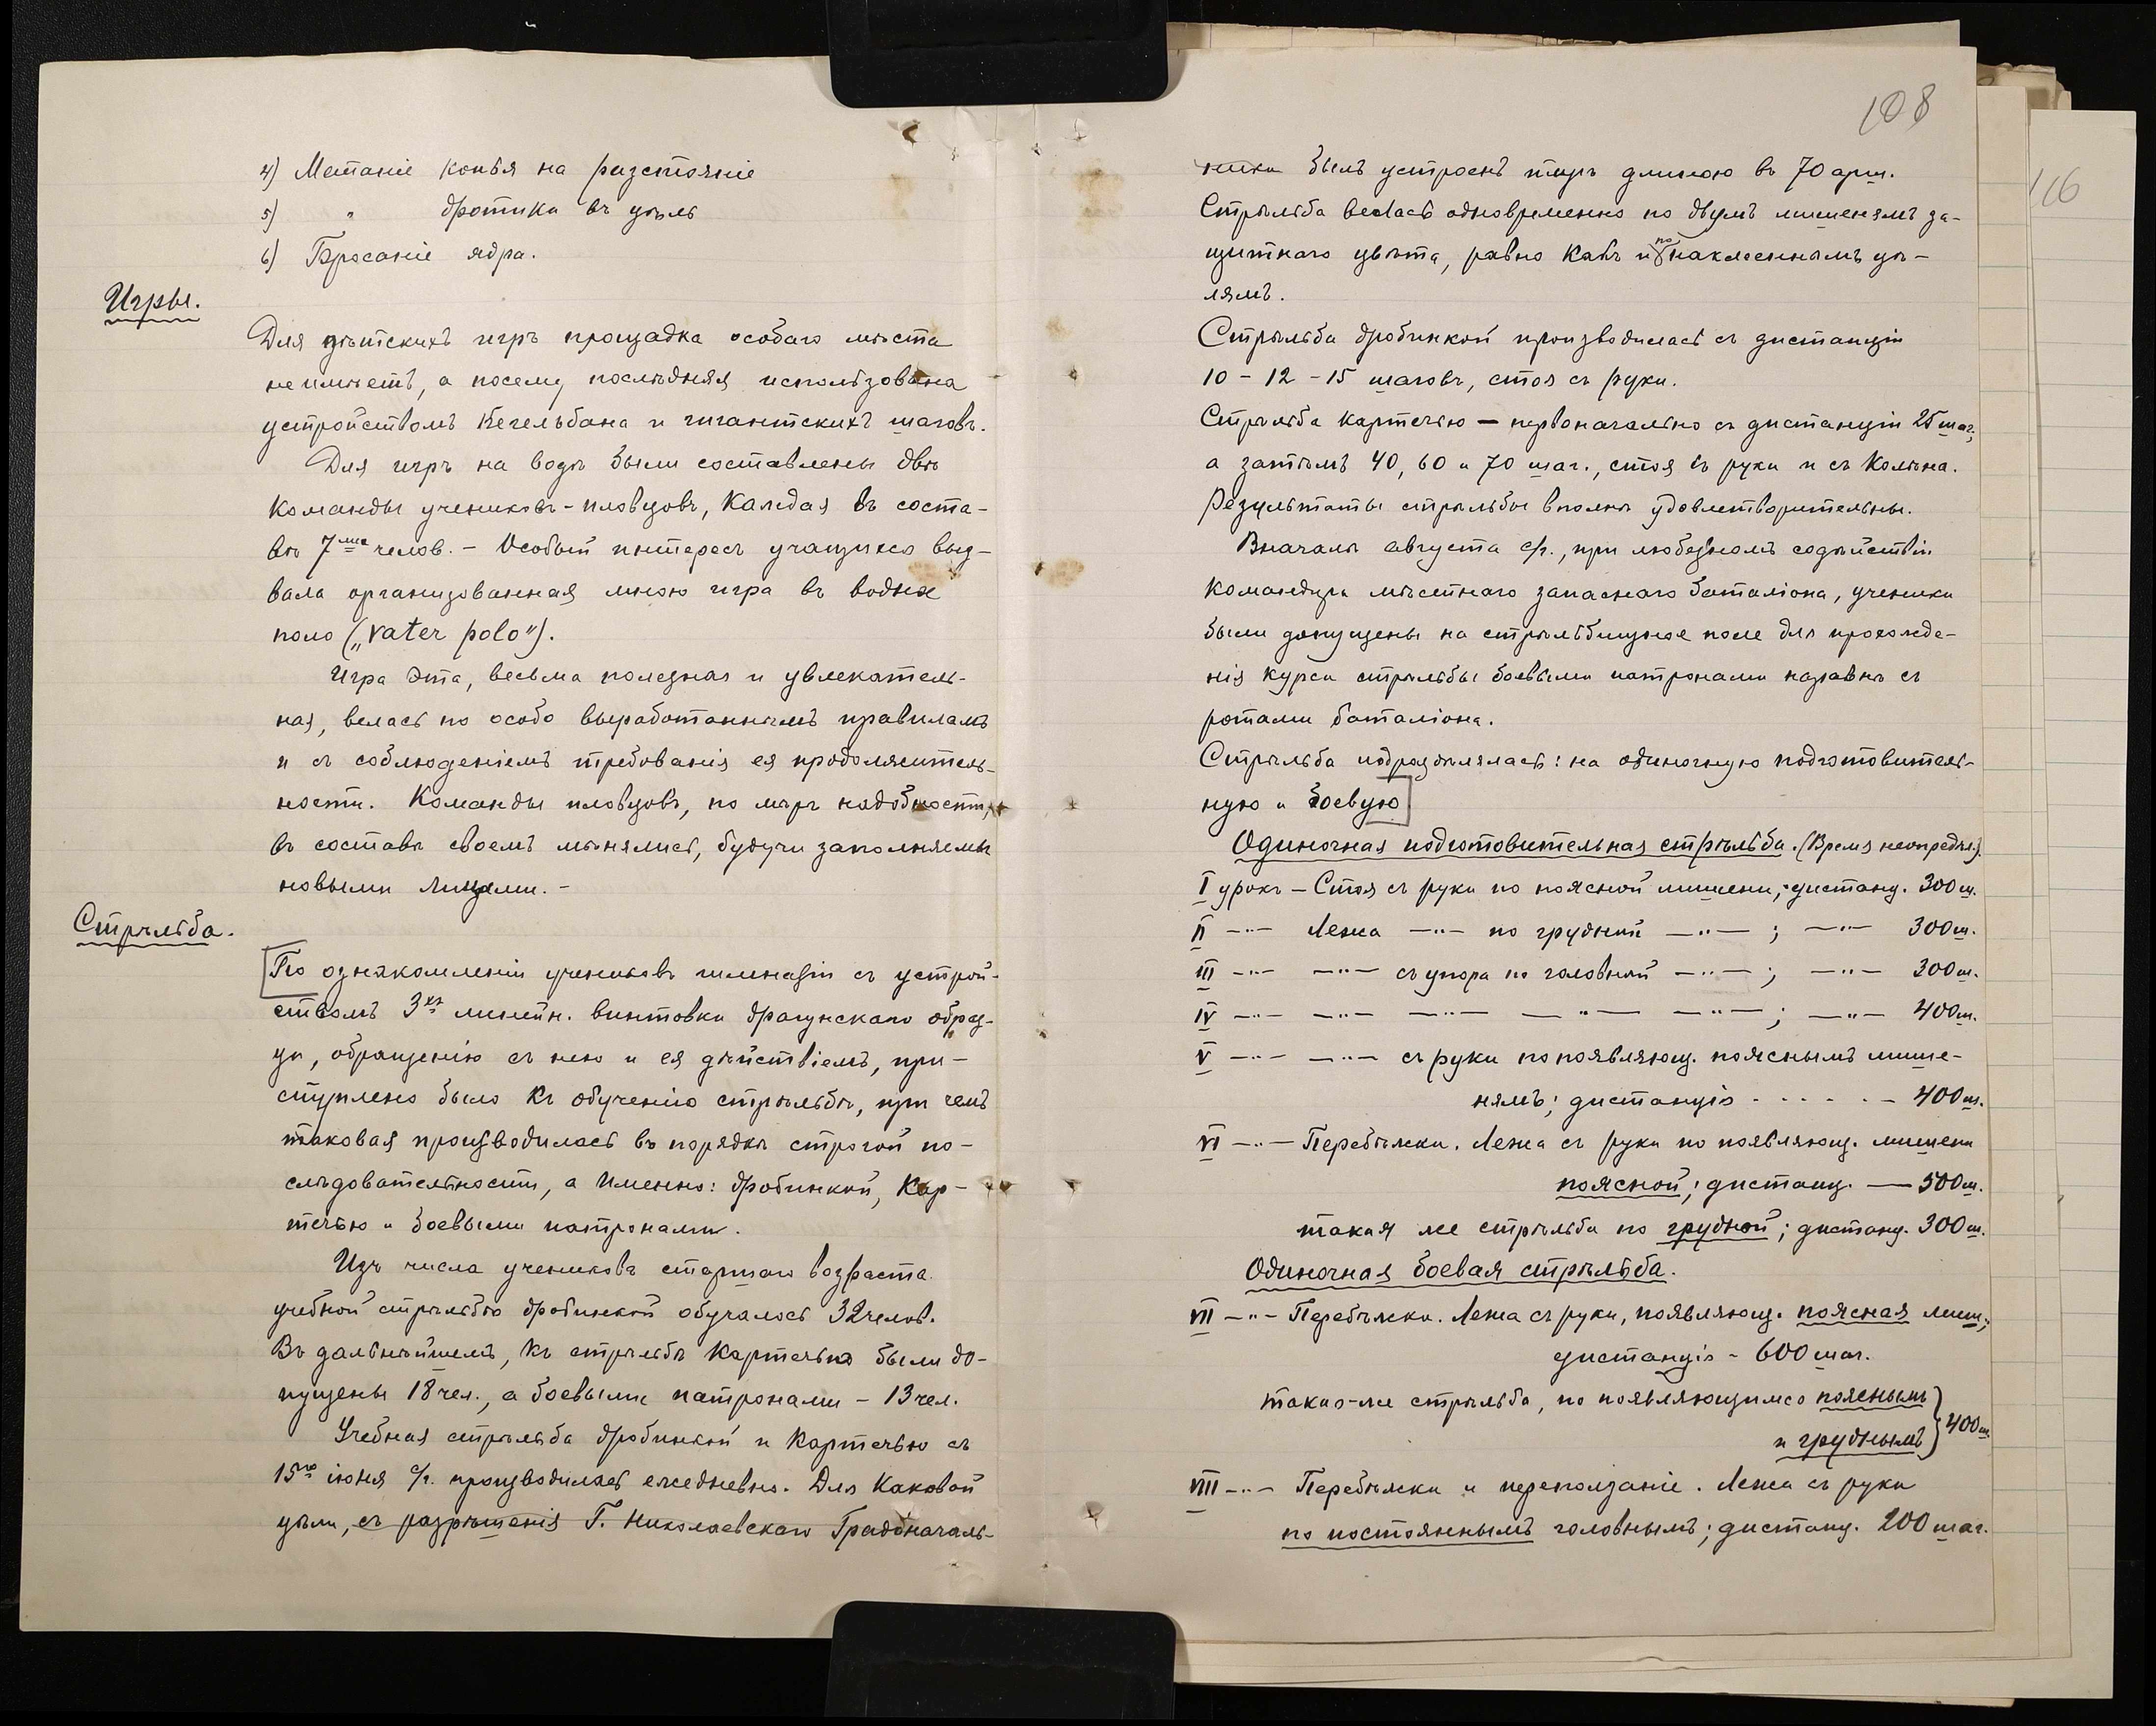 4) Метаніе копья на разстояніе
5) " дротика въ цѣль
6) Бросаніе ядра.
Игры.
Для дѣтскихъ игръ площадка особаго мѣста
не имѣетъ, а посему послѣдняя использована
устройствомъ кегельбана и гигантскихъ шаговъ.
Для игръ на водѣ были составлены двѣ
команды учениковъ-пловцовъ, каждая въ соста-
вѣ 7ми челов. – Особый интересъ учащихся выз-
вала организованная мною игра въ водное
поло („vater polo").
Игра эта, весьма полезная и увлекатель-
ная, велась по особо выработаннымъ правиламъ
и съ соблюденіемъ требованія ея продолжитель-
ности. Команды пловцовъ, по мѣрѣ надобности,
въ составѣ своемъ мѣнялись, будучи заполняемы
новыми лицами. –
Стрѣльба.
По ознакомленіи учениковъ гимназіи съ устрой-
ствомъ 3хъ линейн. винтовки драгунскаго образ-
ца, обращенію съ нею и ея дѣйствіемъ, при-
ступлено было къ обученію стрѣльбѣ, при чемъ
таковая производилась въ порядкѣ строгой по-
слѣдовательности, а именно: дробинкой, кар-
течью и боевыми патронами.
Изъ числа учениковъ старшаго возраста
учебной стрѣльбою дробинкой обучалось 32 челов.
Въ дальнѣйшемъ, къ стрѣльбѣ картечью были до-
пущены 18 чел., а боевыми патронами – 13 чел.
Учебная стрѣльба дробинкой и картечью съ
15го іюня с/г. производилась ежедневно. Для каковой
цѣли, съ разрѣшенія Г. Николаевскаго Градоначаль-
108
ника былъ устроенъ тиръ длиною въ 70 арш.
Стрѣльба велась одновременно по двумъ мишенямъ за-
щитнаго цвѣта, равно какъ и по наклееннымъ цѣ-
лямъ.
Стрѣльба дробинкой производилась съ дистанціи
10 – 12 – 15 шаговъ, стоя съ руки.
Стрѣльба картечью – первоначально съ дистанціи 25 шаг.,
а затѣмъ 40, 60 и 70 шаг., стоя съ руки и съ колѣна.
Результаты стрѣльбы вполнѣ удовлетворительны.
Вначалѣ августа с/г., при любезномъ содѣйствіи
командира мѣстнаго запаснаго баталіона, ученики
были допущены на стрѣльбищное поле для прохожде-
нія курса стрѣльбы боевыми патронами наравнѣ съ
ротами баталіона.
Стрѣльба подраздѣлялась: на одиночную подготовитель-
ную и боевую
Одиночная подготовительная стрѣльба. (Время неопредѣл.).
I урокъ – Стоя съ руки по поясной мишени; дистанц. 300 ш.
II –"– Лежа –"– по грудной –"– ; –"– 300 ш.
III –"– –"– съ упора по головной –"– ; –"– 300 ш.
IV –"– –"– –"– –"– –"– ; –"– 400 ш.
V –"– –"– съ руки по появляющ. пояснымъ мише-
нямъ; дистанція - - - - - 400 ш.
VI –"– Перебѣжки. Лежа съ руки по появляющ. мишени
поясной; дистанц. — 500 ш.
такая же стрѣльба по грудной; дистанц. 300 ш.
Одиночная боевая стрѣльба.
VII –"– Перебѣжки. Лежа съ руки, появляющ. поясная миш.;
дистанція – 600 шаг.
такая-же стрѣльба, по появляющимся пояснымъ
и груднымъ } 400 ш.
VIII –"– Перебѣжки и переползаніе. Лежа съ руки
по постояннымъ головнымъ; дистанц. 200 шаг.
116